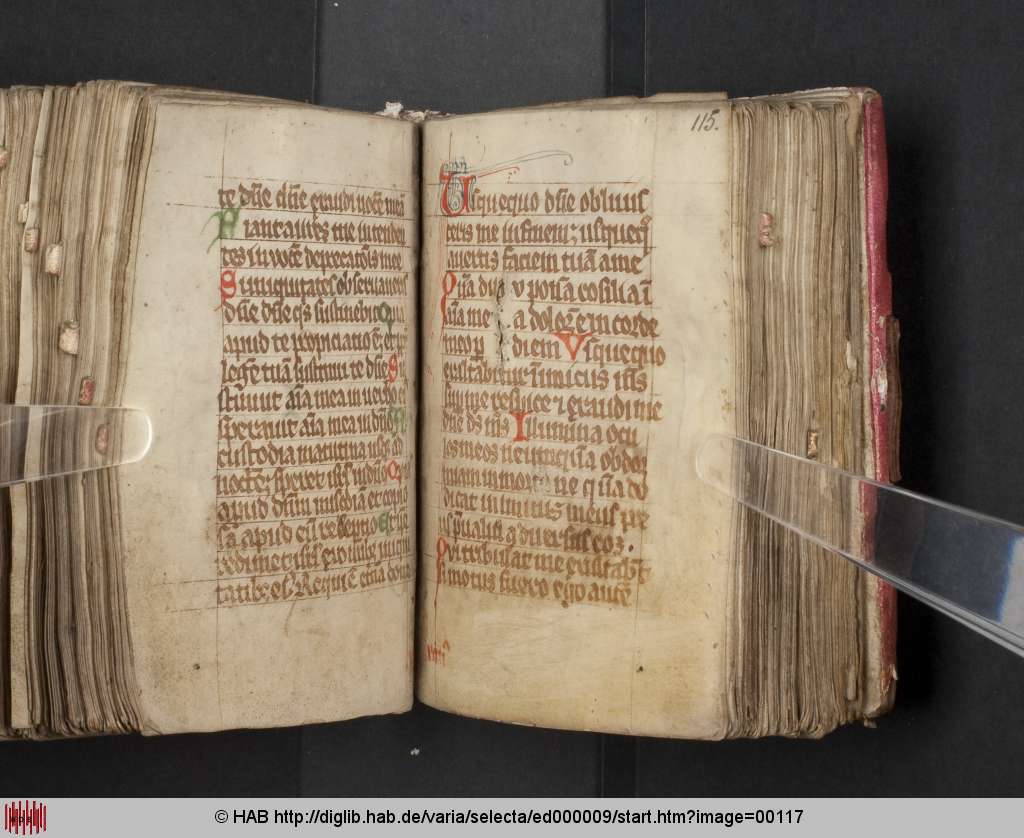 te dñe dñe exaudi uocē meā
Fiant aures tue intenden
tes in uocē deprecatōis mee
Si iniquitates obseruaueris
dñe dñe qs sustinebit Quia
apud te propiciatio ē et ppt
legē tuā sustinui te dñe Su
stinuit aīa mea in uerbo ei
sperauit aīa mea in dño A
custodia matutina usqz ad
noctē speret isrl in dño Q
apud dñm misc̄dia et copio
sa apud eū redēptio Et ipse
redimet isrl ex omībz iniqui
tatibz eꝰ Requiē etnā dona
115.
Usquequo dñe obliuis
ceris me in finem usquequo
auertis faciem tuā a me
Quā diu ponā cōsilia ī
aīa me a dolorē in corde
meo p diem Usquequo
exaltabitur īimicus
me respice et exaudi me
dñe ds ms Illumina ocu
los meos ne unquā obdor
miam in morte ne qñ di
cat inimicus meus pre
ualui aduersus eoz.
Qui tribulāt me exultabūt
si motus fuero ego autē
© HAB http://diglib.hab.de/varia/selecta/ed000009/start.htm?image=00117